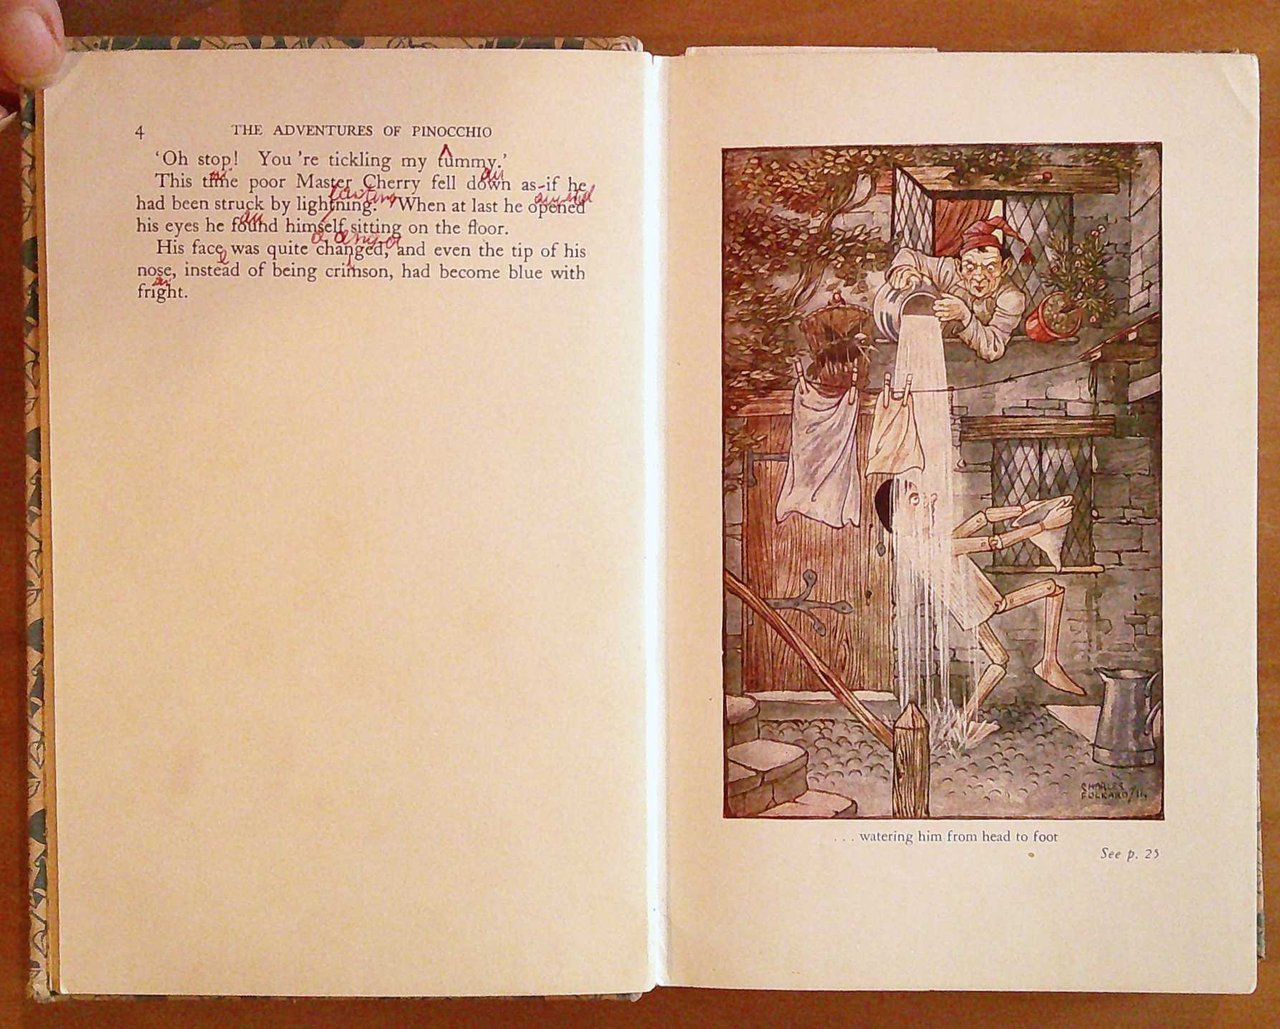 4 THE ADVENTURES OF PINOCCHIO
'Oh stop! You're tickling my tummy.'
This time poor Master Cherry fell down as if he
had been struck by lightning. When at last he opened
his eyes he found himself sitting on the floor.
His face was quite changed, and even the tip of his
nose, instead of being crimson, had become blue with
fright.
CHARLES
FOLKARD/11.
. . . watering him from head to foot
See p. 25